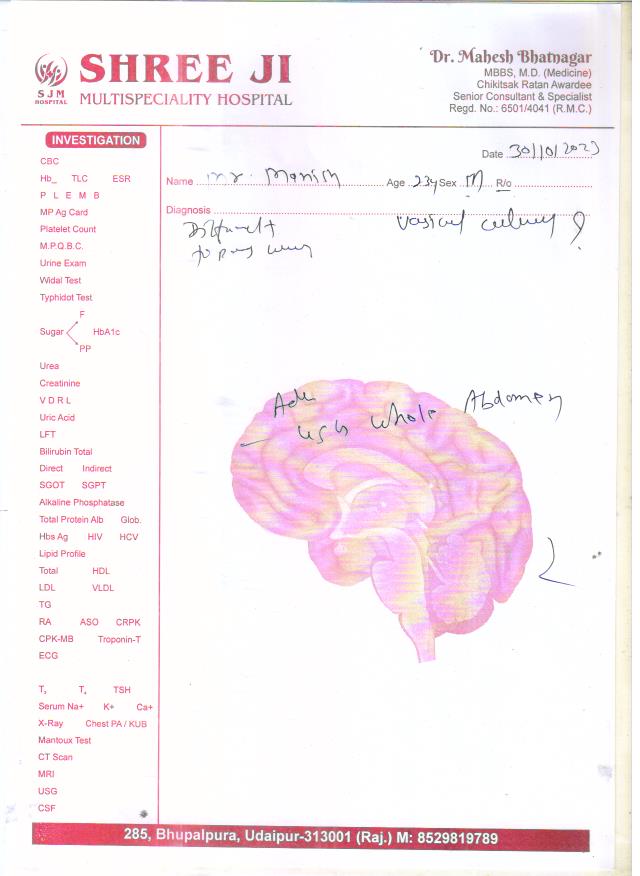 SHREE JI
MULTISPECIALITY HOSPITAL
SJM
HOSPITAL
Dr. Mahesh Bhatnagar
MBBS, M.D. (Medicine)
Chikitsak Ratan Awardee
Senior Consultant & Specialist
Regd. No.: 6501/4041 (R.M.C.)
Date 30/10/2023
Name Mr. Manish Age 23y Sex M R/o
Diagnosis
Difficult
to pass urine
Adv
USG whole Abdomen
INVESTIGATION
CBC
Hb_ TLC ESR
P L E M B
MP Ag Card
Platelet Count
M.P.Q.B.C.
Urine Exam
Widal Test
Typhidot Test
F
Sugar HbA1c
PP
Urea
Creatinine
V D R L
Uric Acid
LFT
Bilirubin Total
Direct Indirect
SGOT SGPT
Alkaline Phosphatase
Total Protein Alb Glob.
Hbs Ag HIV HCV
Lipid Profile
Total HDL
LDL VLDL
TG
RA ASO CRPK
CPK-MB Troponin-T
ECG
T3 T4 TSH
Serum Na+ K+ Ca+
X-Ray Chest PA / KUB
Mantoux Test
CT Scan
MRI
USG
CSF
285, Bhupalpura, Udaipur-313001 (Raj.) M: 8529819789